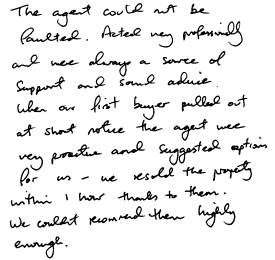 The agent could not be
faulted. Acted very professionally
and were always a source of
support and sound advice.
When our first buyer pulled out
at short notice the agent were
very proactive and suggested options
for us – we resold the property
within 1 hour thanks to them.
We couldn't recommend them highly
enough.